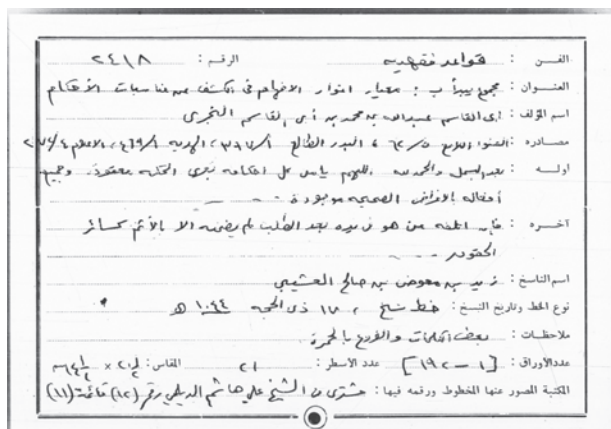 الفن : قواعد فقهية الرقم : ٢٤١٨
العنوان : مجموع يبدأ ب : معيار اغوار الافهام في الكشف عن مناسبات الأحكام
اسم المؤلف : أبي القاسم عبدالله بن محمد بن أبي القاسم النجري
مصادره : الضوء اللامع ٦٢/٥ ، البدر الطالع ٣٩٧/١ ، الهدية ٤٦٩/١ ، الاعلام
اوله : بعد البسملة والحمد لله اللهم يا من كل احكامه بعرى الحكمة معقودة وجميع
أفعاله بالأغراض الصحيحة موجودة
آخره : فإن اتلفه من هو في يده بعد الطلب لم يضمنه الا بالأثم كسائر
الحقوق
اسم الناسخ : زيد بن معوض بن صالح
نوع الخط وتاريخ النسخ : خط نسخ ، ١٧ ذي الحجة ١٠٤٤ هـ
ملاحظات : بعض الكلمات والفروع بالحمرة
عدد الأوراق : [١ - ١٩٢] عدد الأسطر : ٢١ المقاس :
المكتبة المصور عنها المخطوط ورقمه فيها : مشترى من الشيخ علي هاشم الديلمي رقم (١٢) قائمة (١١)